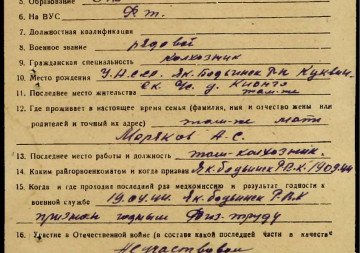 5. Образование
6. На ВУС Рт.
7. Должностная квалификация
8. Военное звание рядовой
9. Гражданская специальность колхозник
10. Место рождения У.А.С.С.Р. Як. Бодьинск Р-н
11. Последнее место жительства там-же
12. Где проживает в настоящее время семья (фамилия, имя и отчество жены или
родителей и точный адрес) там-же мать
А. С.
13. Последнее место работы и должность там-колхозник.
14. Каким райгорвоенкоматом и когда призван Як. Бодьинск Р.В.К.
15. Когда и где проходил последний раз медкомиссию и результат годности к
военной службе 19.04.44. Як. Бодьинск Р.В.К
признан годным Физ-труду
16. Участие в Отечественной войне (в составе какой последней части, в качестве
Не участвовал